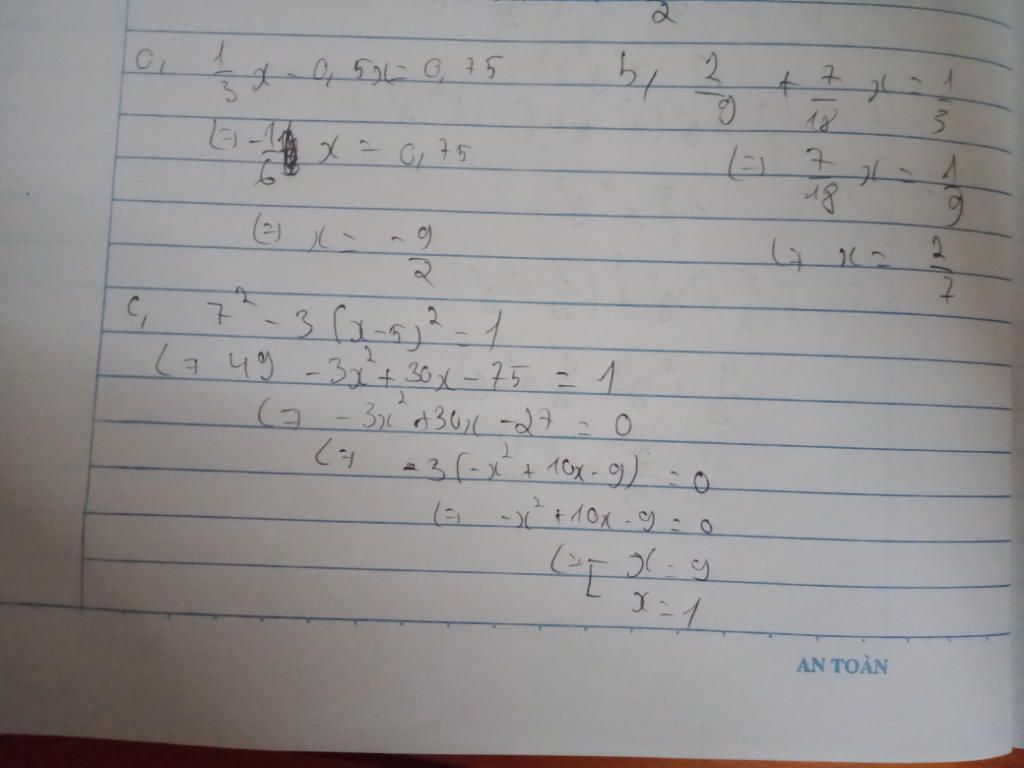 2
a, 1/3 x - 0,5x = 0,75
(=) -1/6 x = 0,75
(=) x = -9/2
b, 2/9 + 7/18 x = 1/3
(=) 7/18 x = 1/9
(=) x = 2/7
c, 7² - 3(x-5)² = 1
(=) 49 - 3x² + 30x - 75 = 1
(=) -3x² + 30x - 27 = 0
(=) 3(-x² + 10x - 9) = 0
(=) -x² + 10x - 9 = 0
(=) [ x = 9
x = 1
AN TOÀN